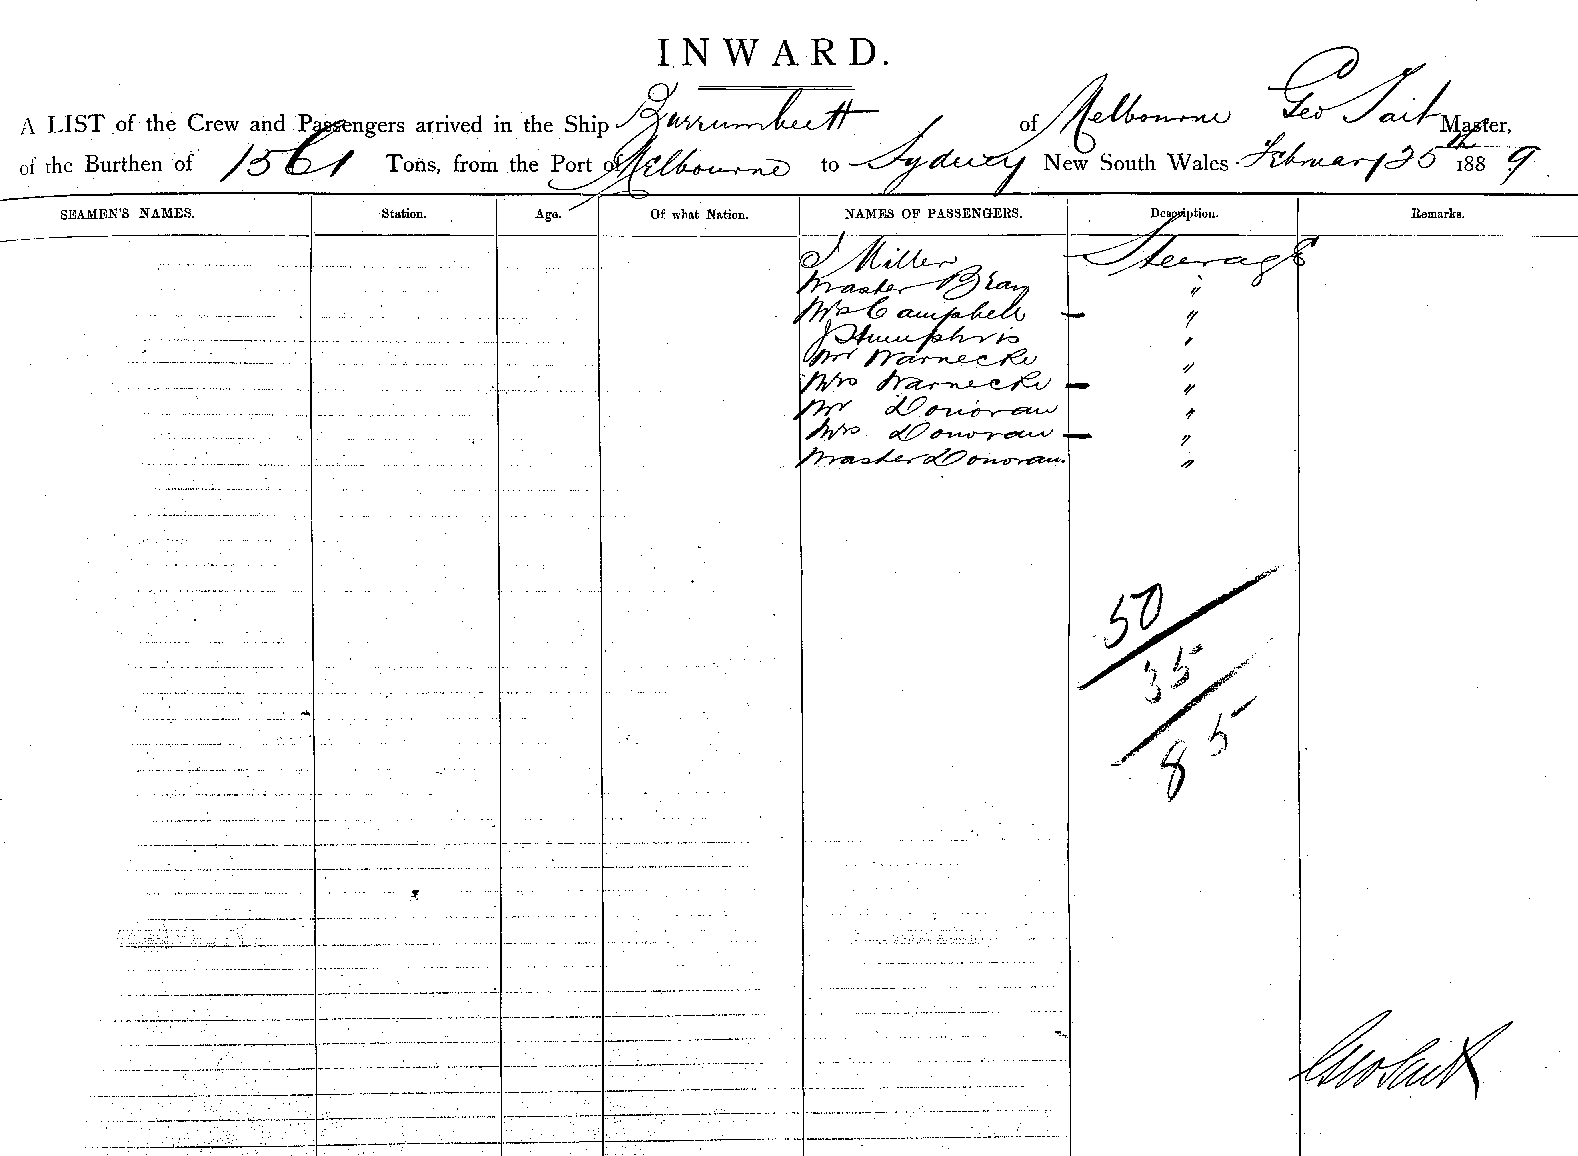 INWARD.
A LIST of the Crew and Passengers arrived in the Ship Burrumbeett of Melbourne Geo Tait Master,
of the Burthen of 1561 Tons, from the Port of Melbourne to Sydney New South Wales February 25th 1889.
SEAMEN'S NAMES. Station. Age. Of what Nation. NAMES OF PASSENGERS. Description. Remarks.
J Miller Steerage
Master Bray "
Mrs Campbell — "
J Humphris "
Mr Warnecke "
Mrs Warnecke — "
Mr Donovan "
Mrs Donovan — "
Master Donovan. "
50
35
85
Geo Tait